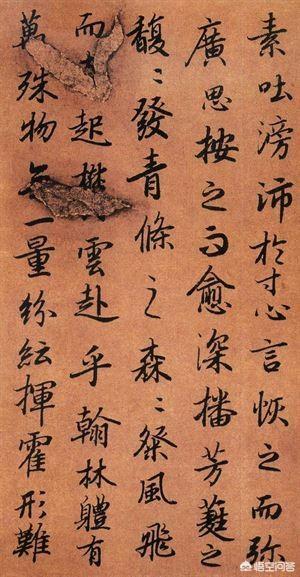 素吐滂沛於寸心言恢之而弥
廣思按之而愈深播芳蕤之
馥〻發青條之森〻粲風飛
而起雲赴乎翰林體有
萬殊物无一量紛紜揮霍形難
悟空问答